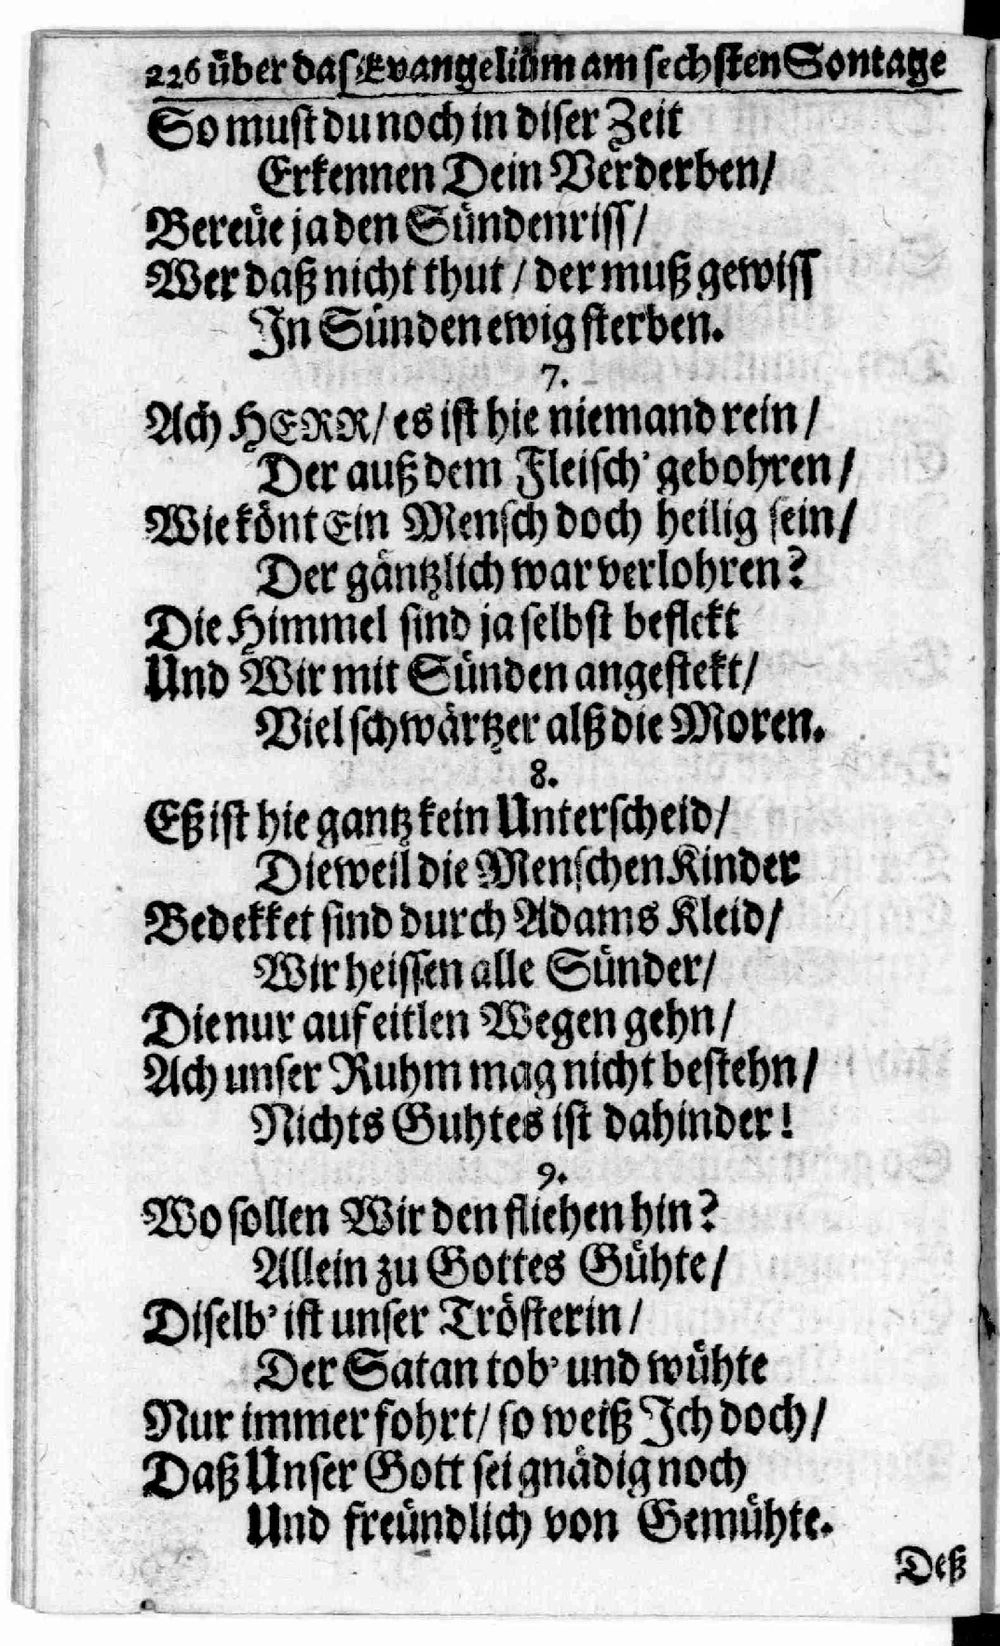 226 über das Evangelium am sechsten Sontage
So must du noch in diser Zeit
Erkennen Dein Verderben/
Bereüe ja den Sündenriss/
Wer daß nicht thut/ der muß gewiss
In Sünden ewig sterben.
7.
Ach HERR/ es ist hie niemand rein/
Der auß dem Fleisch' gebohren/
Wie könt Ein Mensch doch heilig sein/
Der gäntzlich war verlohren?
Die Himmel sind ja selbst beflekt
Und Wir mit Sünden angestekt/
Viel schwärtzer alß die Moren.
8.
Eß ist hie gantz kein Unterscheid/
Dieweil die Menschen Kinder
Bedekket sind durch Adams Kleid/
Wir heissen alle Sünder/
Die nur auf eitlen Wegen gehn/
Ach unser Ruhm mag nicht bestehn/
Nichts Guhtes ist dahinder!
9.
Wo sollen Wir den fliehen hin?
Allein zu Gottes Gühte/
Diselb' ist unser Trösterin/
Der Satan tob' und wühte
Nur immer fohrt/ so weiß Ich doch/
Daß Unser Gott sei gnädig noch
Und freündlich von Gemühte.
Deß